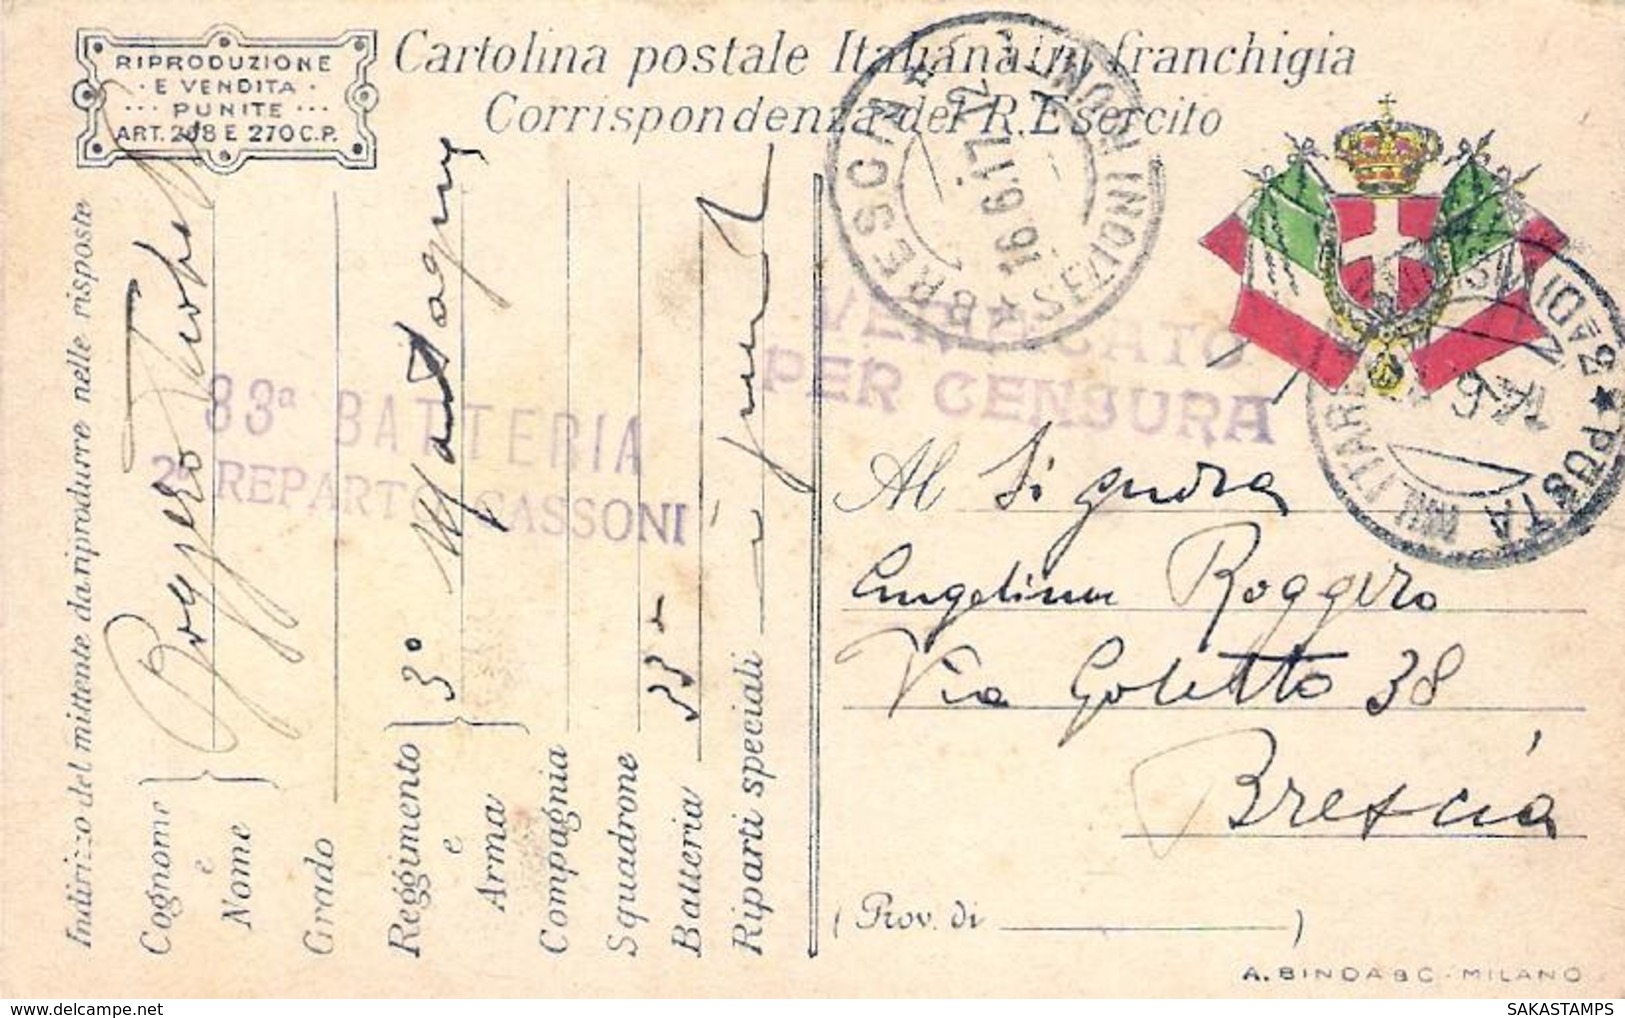 RIPRODUZIONE
E VENDITA
PUNITE
ART. 268 E 270 C.P.
Cartolina postale Italiana in franchigia
Corrispondenza del R. Esercito
BRESCIA
16.6.17.12
SEZIONI RIUNITE
VERIFICATO
PER CENSURA
POSTA MILITARE
DIVISIONE
Indirizzo del mittente da riprodurre nelle risposte
Cognome e Nome
Roggero
Grado
Reggimento e Arma
3° Montagna
Compagnia
Squadrone
Batteria
Riparti speciali
83ª BATTERIA
2° REPARTO CASSONI
Al Signora
Angelina Roggero
Via Goletto 38
Brescia
(Prov. di )
A. BINDA & C - MILANO
SAKASTAMPS